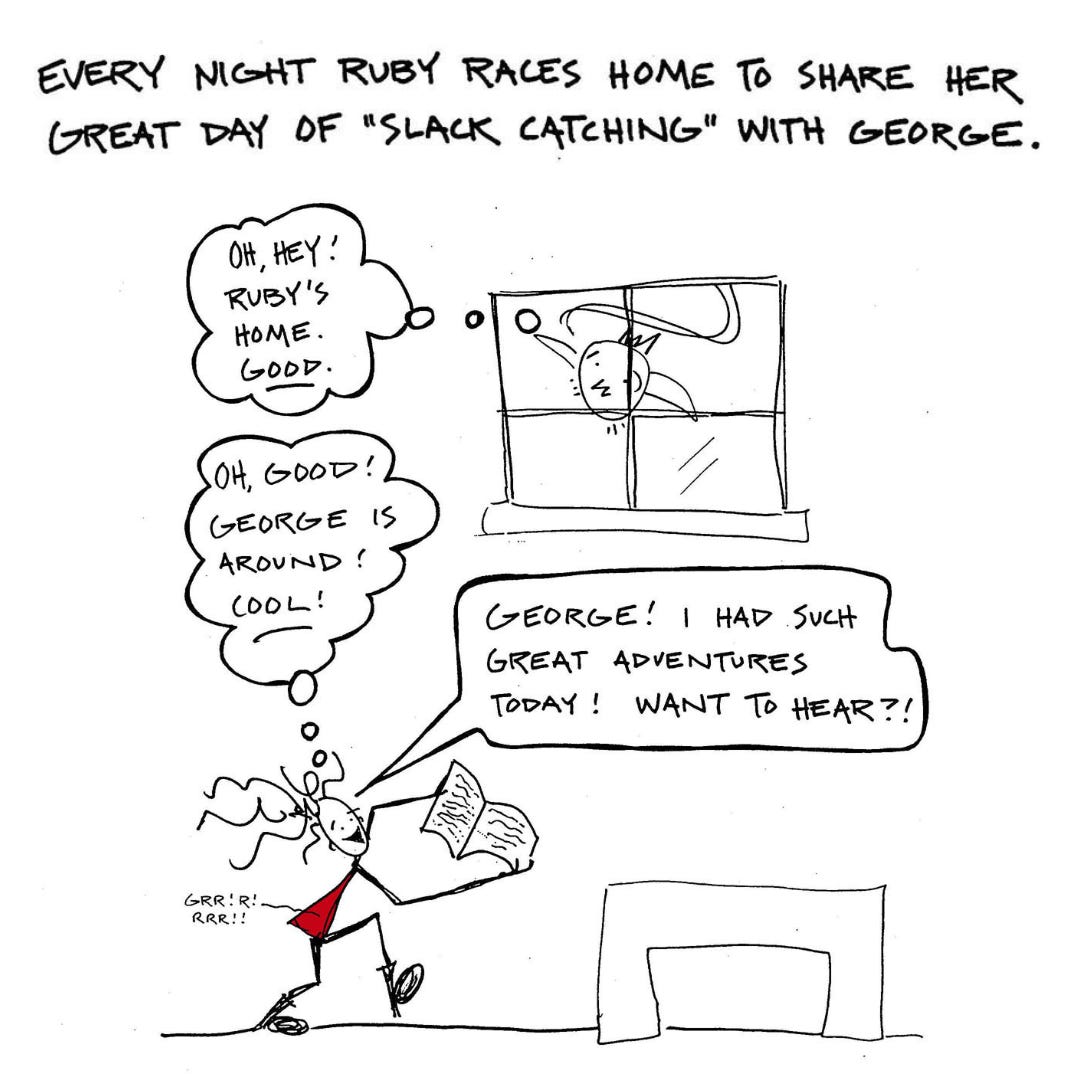 EVERY NIGHT RUBY RACES HOME TO SHARE HER
GREAT DAY OF "SLACK CATCHING" WITH GEORGE.
OH, HEY!
RUBY'S
HOME.
GOOD.
OH, GOOD!
GEORGE IS
AROUND!
COOL!
GEORGE! I HAD SUCH
GREAT ADVENTURES
TODAY! WANT TO HEAR?!
GRR!R!
RRR!!